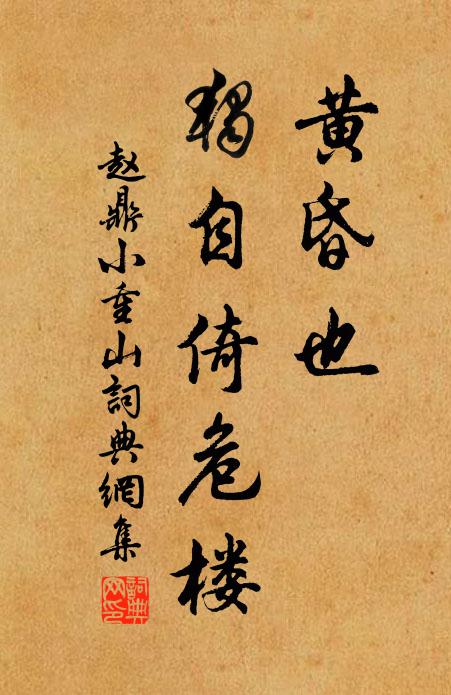 黄昏也
独自倚危楼
赵鼎小重山詞典網集
詞典
网印